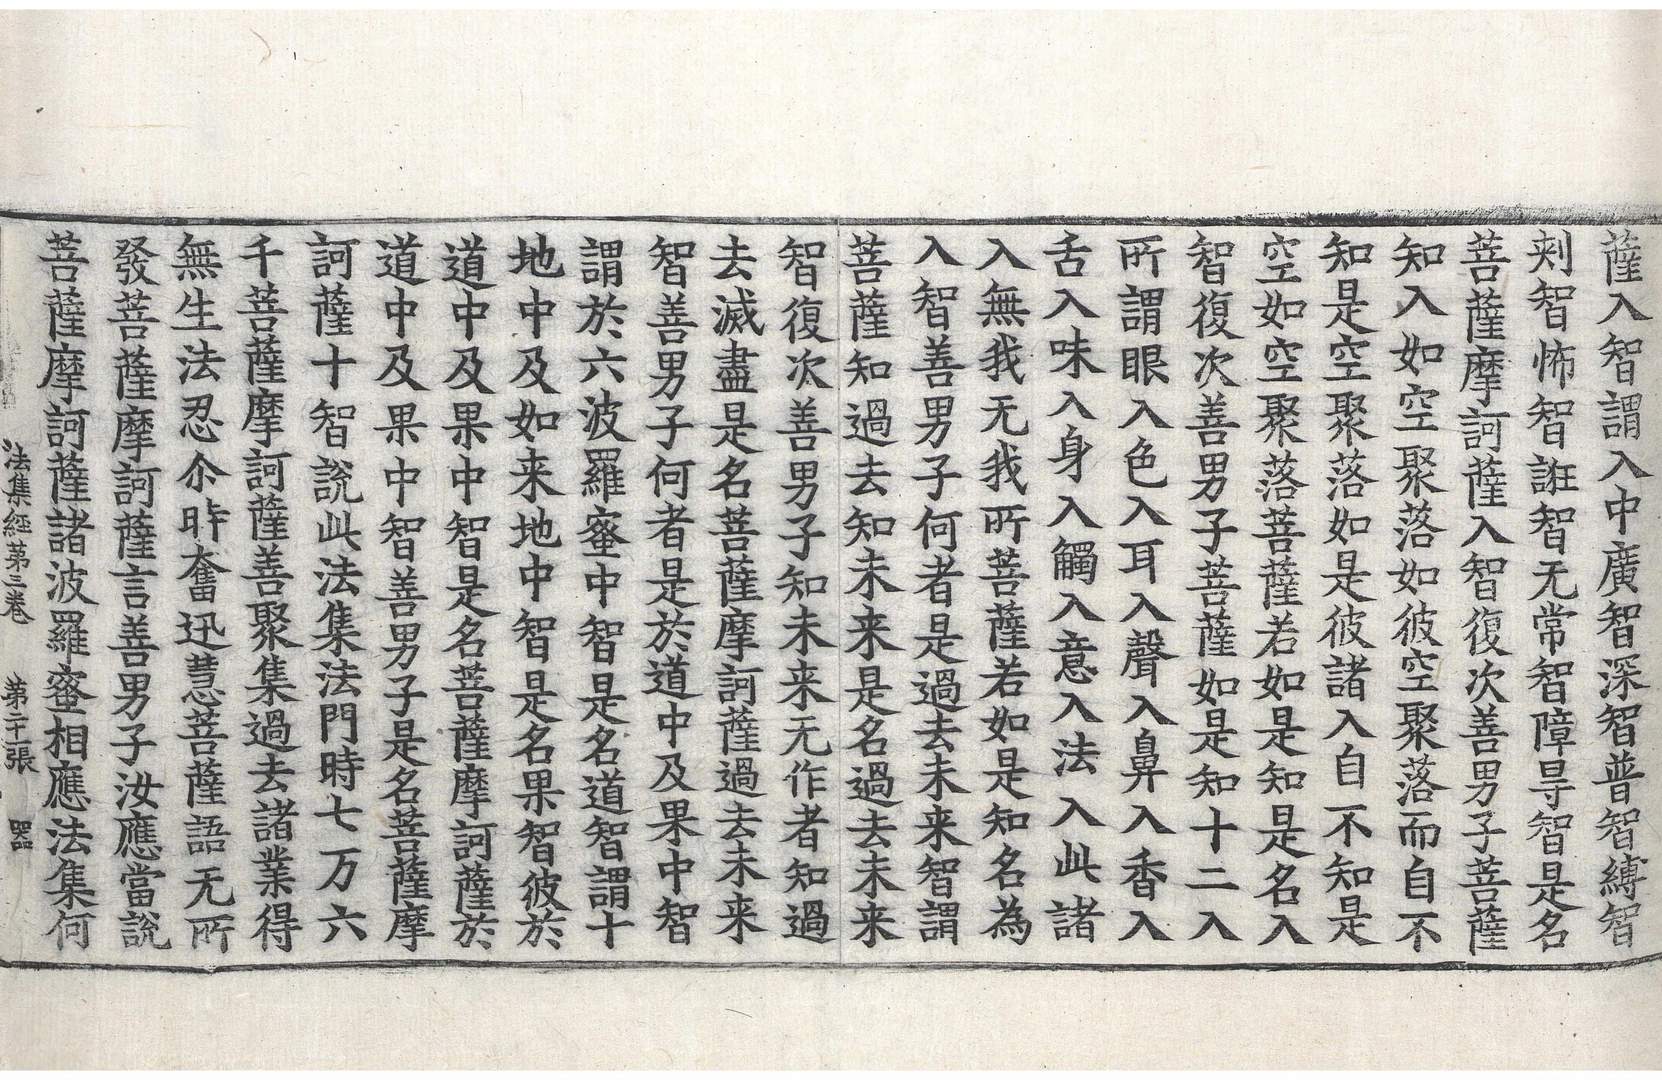 薩入智謂入中廣智深智普智縛智
刾智怖智誑智无常智障㝵智是名
菩薩摩訶薩入智復次善男子菩薩
知入如空聚落如彼空聚落而自不
知是空聚落如是彼諸入自不知是
空如空聚落菩薩若如是知是名入
智復次善男子菩薩如是知十二入
所謂眼入色入耳入聲入鼻入香入
舌入味入身入觸入意入法入此諸
入無我无我所菩薩若如是知名為
入智善男子何者是過去未来智謂
菩薩知過去知未来是名過去未来
智復次善男子知未来无作者知過
去滅盡是名菩薩摩訶薩過去未来
智善男子何者是於道中及果中智
謂於六波羅蜜中智是名道智謂十
地中及如来地中智是名果智彼於
道中及果中智是名菩薩摩訶薩於
道中及果中智善男子是名菩薩摩
訶薩十智說此法集法門時七万六
千菩薩摩訶薩善聚集過去諸業得
無生法忍尒時奮迅慧菩薩語无所
發菩薩摩訶薩言善男子汝應當說
菩薩摩訶薩諸波羅蜜相應法集何
法集經第三卷 第二十張 器